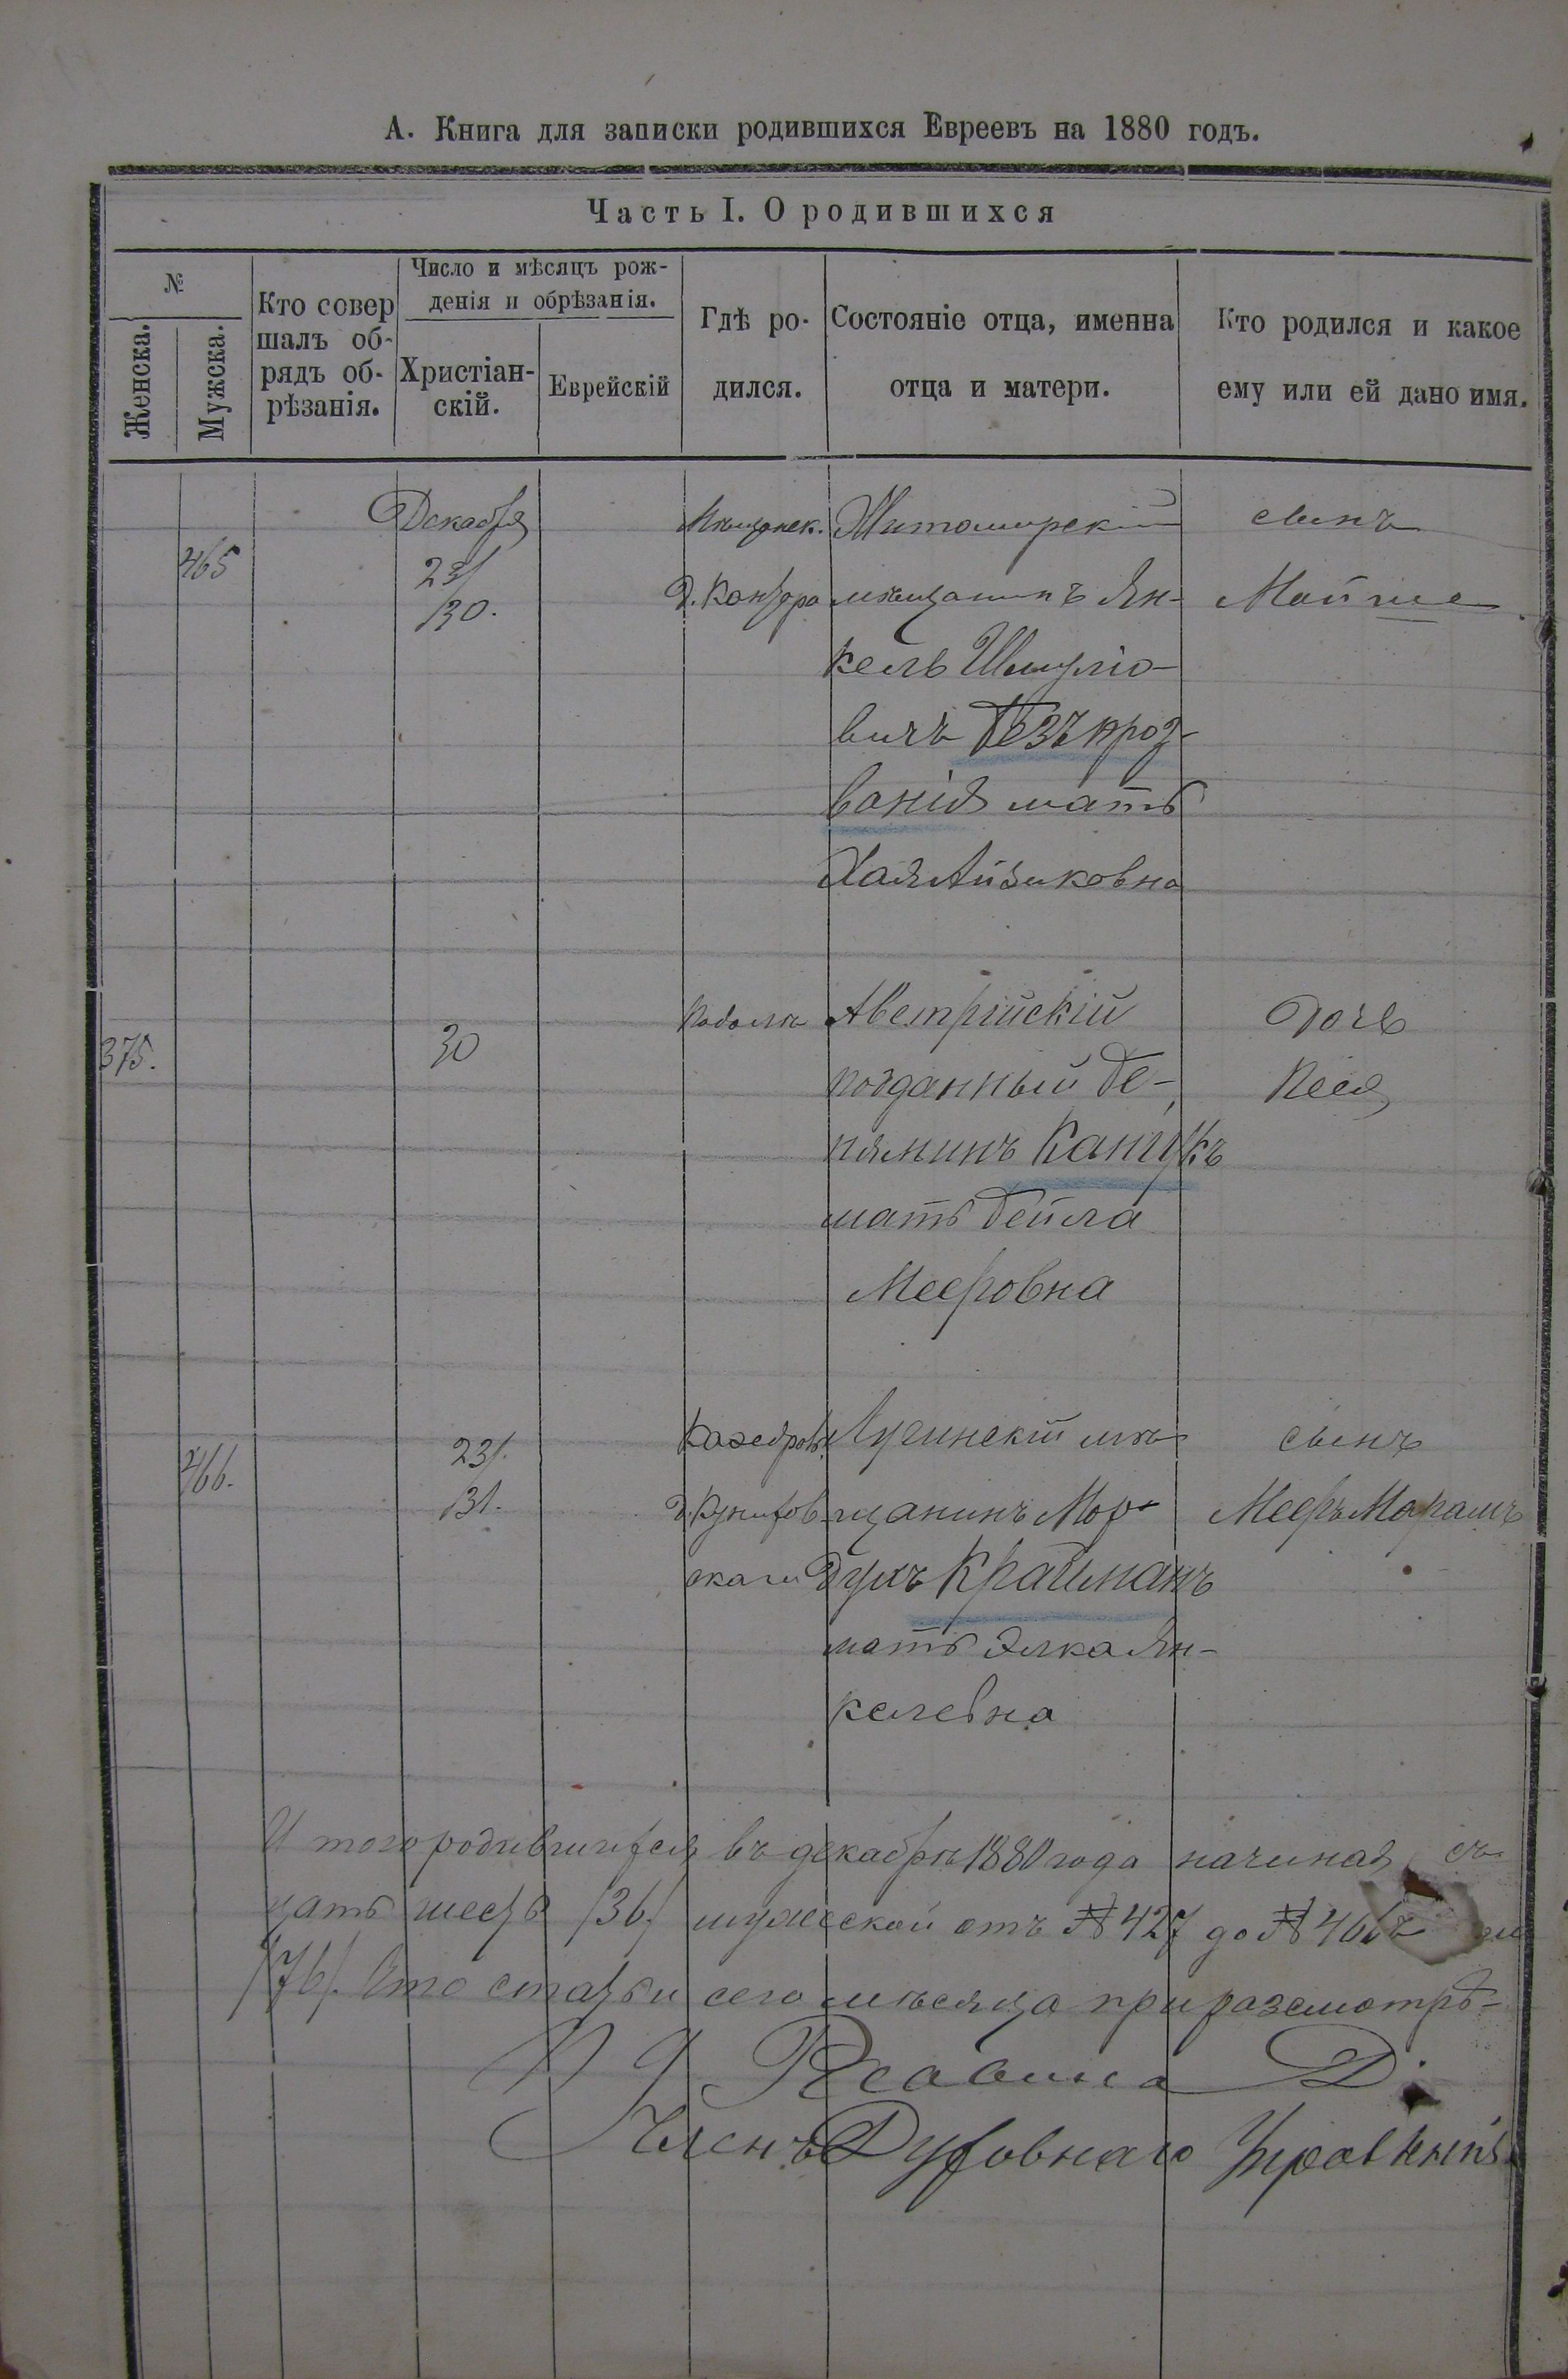 А. Книга для записки родившихся Евреевъ на 1880 годъ.
Часть I. О родившихся
№
Женска.
Мужска.
Кто совер
шалъ об-
рядъ об-
рѣзанія.
Число и мѣсяцъ рож-
денія и обрѣзанія.
Христіан-
скій.
Еврейскій
Гдѣ ро-
дился.
Состояніе отца, именна
отца и матери.
Кто родился и какое
ему или ей дано имя.
Декабря
465
23/
30.
д. Кантора
Житомирскій
мѣщанинъ Ян-
кель Шмуліо-
вичъ Безъ проз-
ванія мать
Хая Айзиковна
сынъ
Мойше
375.
30
Подолъ
Австрійскій
подданный Бе-
няминъ Канчукъ
мать Бейла
Мееровна
дочь
Песя
466.
23/.
31.
Кафедров.
Лугинскій мѣ-
щанинъ Мор-
духъ Крайманъ
мать Элка Ян-
келевна
скаги
сынъ
Мееръ Марамъ
И того родившихся въ декабрѣ 1880 года начиная съ
цать шесть /36/ мужеской отъ № 427 до № 466
/76/. Сто статьи сего мѣсяца при разсмотрѣ-
Раввина
Членъ Духовнаго Правленія